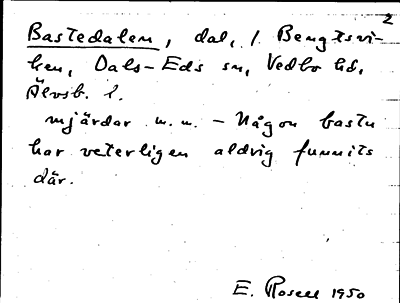 2
Bastedalen, dal, 1. Bengtsvi-
ken, Dals-Eds sn, Vedbo hd,
Älvsb. l.
mjärdar m. m. – Någon bastu
har veterligen aldrig funnits
där.
E. Rosell 1950